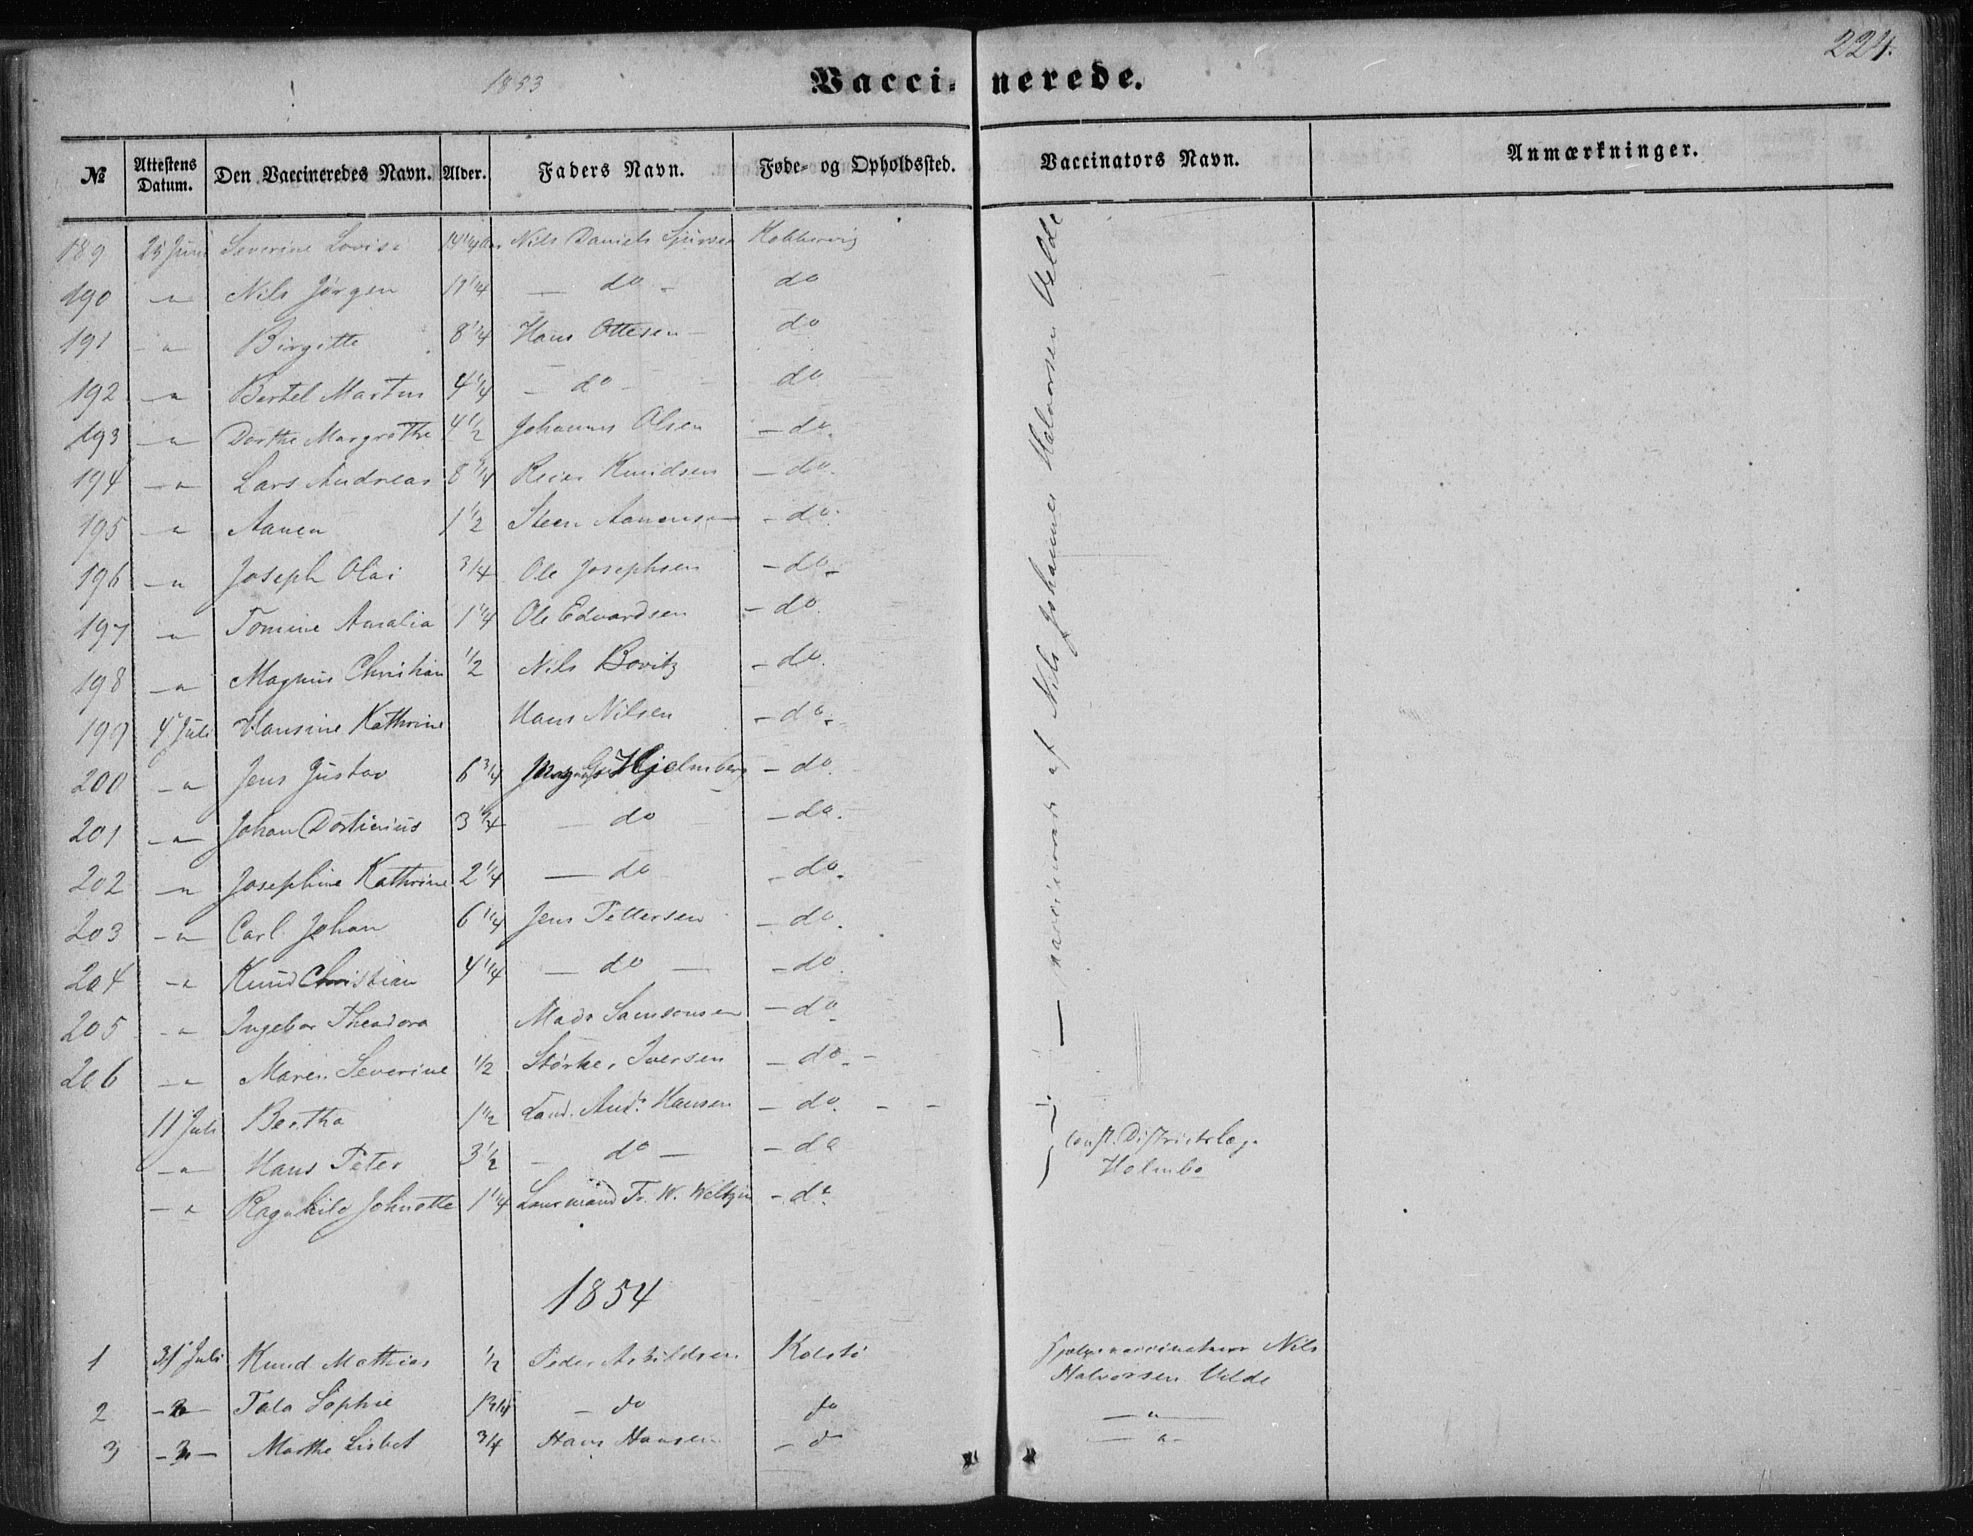 224.
1853
Vaccinerede.
№ Attestens Datum. Den Vaccineredes Navn. Alder. Faders Navn. Føde- og Opholdssted. Vaccinators Navn. Anmærkninger.
189 25 Juni Severine Lovise 14 1/4 Nils Daniels
190 — " — Nils Jørgen 11 1/4 — do — do
191 — " Birgitte 8 1/4 Hans Ottesen — do
192 — " Bertel Martin 4 1/4 — do — do
193 — " — Dorthe Margrethe 4 1/2 Johannes Olsen — do.
194 — " — Lars Andreas 8 1/4 Reier Knudsen — do.
195 — " Aanen 1 1/2 Steen Aanensen — do.
196 — " Joseph Olai 3/4 Ole Josephsen — do.
197 — " — Tomine Amalia 1 1/4 Ole Edvardsen — do.
198 — " — Magnus Christian 1/2 Nils Bovitz — do.
199 4 Juli Hansine Kathrine Hans Nilsen — do.
200 — " — Jens Gustav 6 3/4 Hjelmberg — do.
201 — " — Johan 3 1/4 — do — do.
202 — " — Josephine Kathrine 2 1/4 — do — do.
203 — " — Carl Johan 6 1/4 Jens Pettersen — do.
204 — " Knud Christian 4 1/4 — do — — do.
205 — " Ingebor Theodora Mads Samsonsen — do.
206 — " Maren Severine 1/2 Størker Iversen — do. —
11 Juli Bertha 1 1/2 And. Hansen — do. — —
— " — Hans Peter 3 1/2 — do — — do
— " Ragnhild Johnette 1 1/4 Fr. W. Weltzin — do.
— vaccinerede af Nils Johannes Halvorsen Velde
Const. Districtslæge
Holmbo
1854
1 31 Juli Knud Mathias 1/2 Peder Askildsen Kolstø Hjælpevaccinateur Nils
Halvorsen Velde
2 — " — Tala Sophie 1 3/4 — do do — " —
3 — " — Marthe Lisbet 3/4 Hans Hansen — d — " —